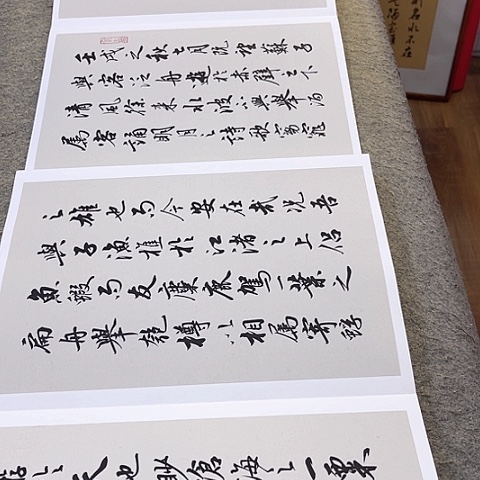 壬戌之秋七月既望蘇子
與客泛舟遊於赤壁之下
清風徐來水波不興舉酒
属客誦明月之詩歌窈窕
之雄也而今安在哉況吾
與子漁樵於江渚之上侶
魚鰕而友麋鹿駕一葉之
扁舟舉匏樽以相属寄蜉
蝣於天地眇滄海之一粟
則名水不在